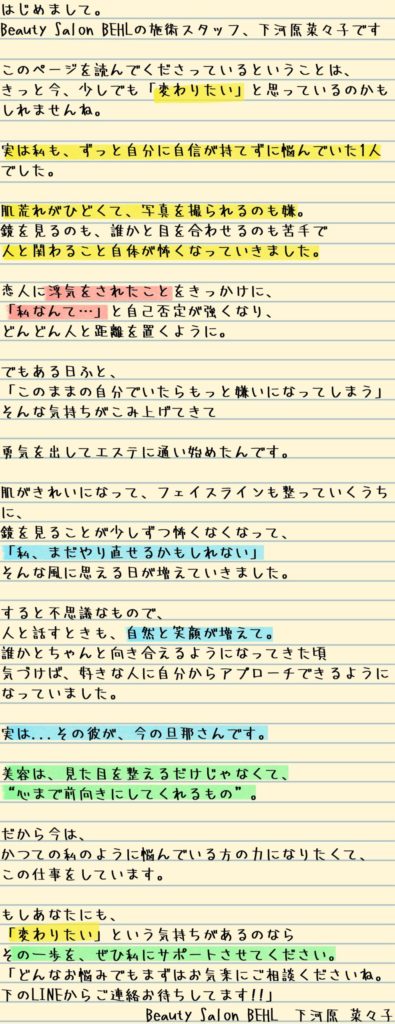 はじめまして。
Beauty Salon BEHLの施術スタッフ、下河原菜々子です
このページを読んでくださっているということは、
きっと今、少しでも「変わりたい」と思っているのかも
しれませんね。
実は私も、ずっと自分に自信が持てずに悩んでいた1人
でした。
肌荒れがひどくて、写真を撮られるのも嫌。
鏡を見るのも、誰かと目を合わせるのも苦手で
人と関わること自体が怖くなっていきました。
恋人に浮気をされたことをきっかけに、
「私なんて…」と自己否定が強くなり、
どんどん人と距離を置くように。
でもある日ふと、
「このままの自分でいたらもっと嫌いになってしまう」
そんな気持ちがこみ上げてきて
勇気を出してエステに通い始めたんです。
肌がきれいになって、フェイスラインも整っていくうち
に、
鏡を見ることが少しずつ怖くなくなって、
「私、まだやり直せるかもしれない」
そんな風に思える日が増えていきました。
すると不思議なもので、
人と話すときも、自然と笑顔が増えて。
誰かとちゃんと向き合えるようになってきた頃
気づけば、好きな人に自分からアプローチできるように
なっていました。
実は...その彼が、今の旦那さんです。
美容は、見た目を整えるだけじゃなくて、
“心まで前向きにしてくれるもの”。
だから今は、
かつての私のように悩んでいる方の力になりたくて、
この仕事をしています。
もしあなたにも、
「変わりたい」という気持ちがあるのなら
その一歩を、ぜひ私にサポートさせてください。
「どんなお悩みでもまずはお気楽にご相談くださいね。
下のLINEからご連絡お待ちしてます!!」
Beauty Salon BEHL 下河原 菜々子